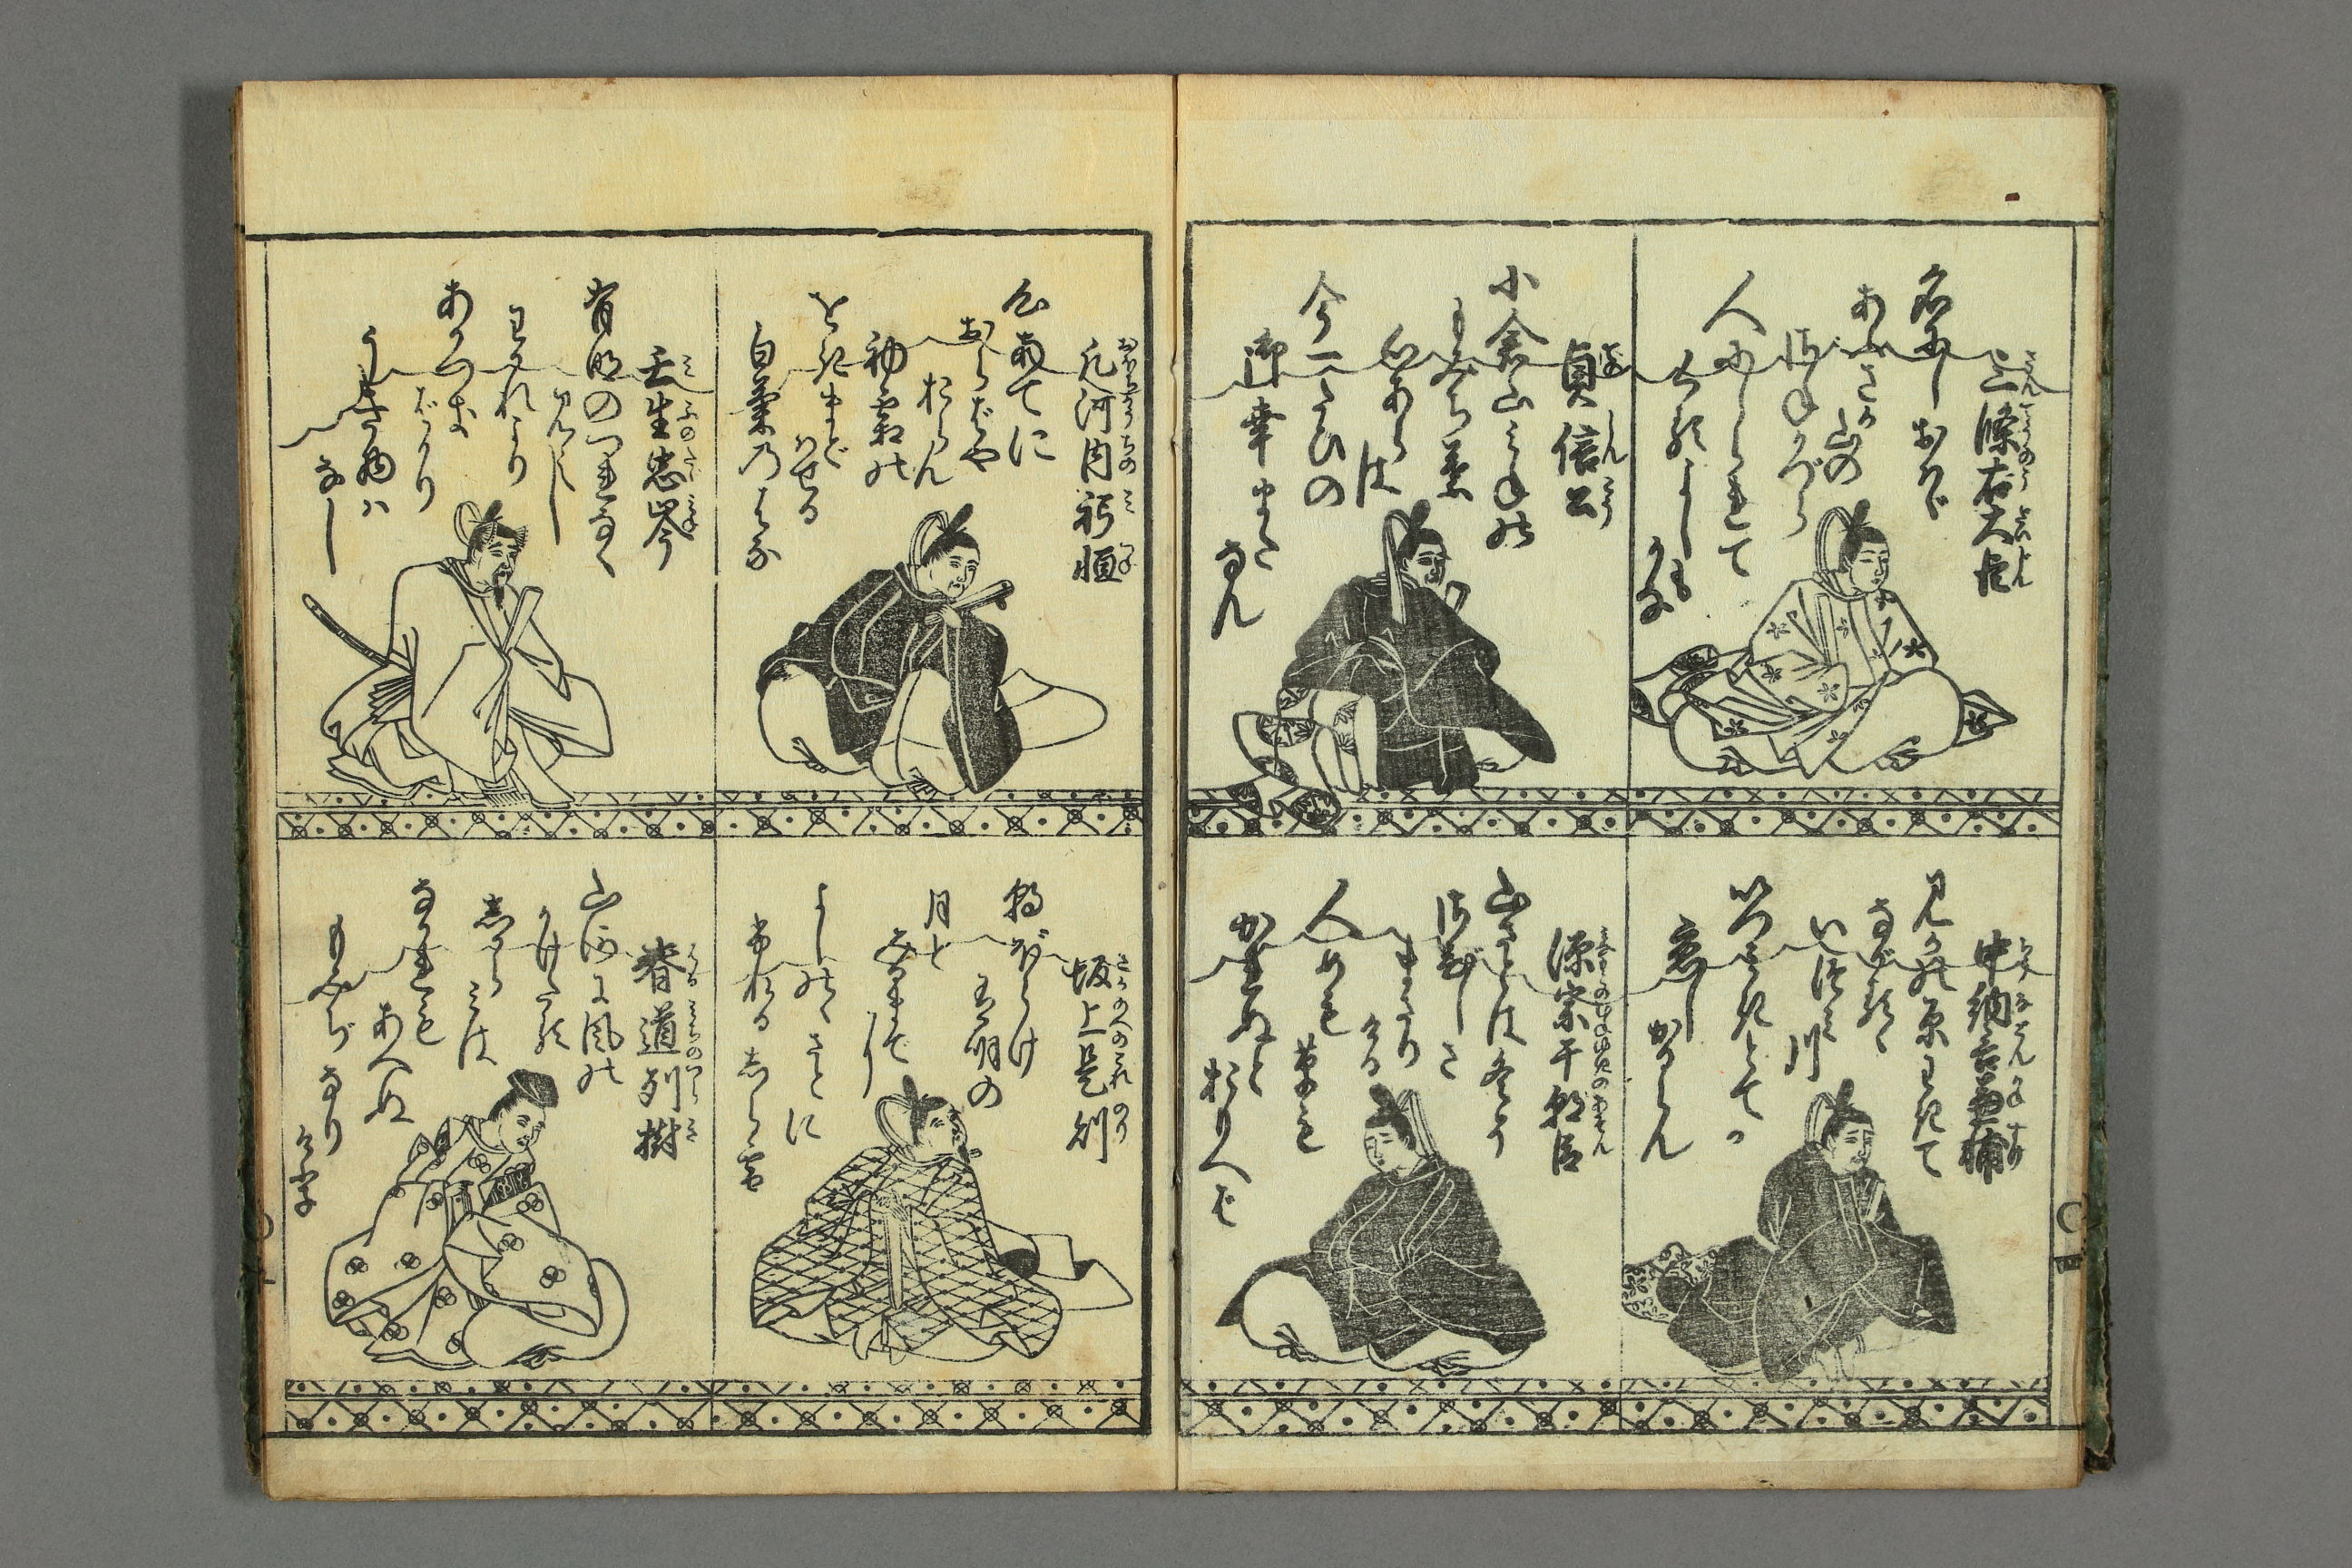 三條右大臣
名にしおハゞ
あふさか
山の
さねかづら
人にしられて
くるよしも
かな
貞信公
小倉山みねの
もみぢ葉
心あらは
今一たひの
御幸またなん
中納言兼輔
みかの原わきて
ながるゝ
いつみ川
いつみきとてか
恋しかるらん
源宗于朝臣
山さとは冬そ
さびしさ
まさり
ける
人めも
草も
かれぬと
おもへば
凡河内躬恒
心あてに
おらばや
おらん
初霜の
をきまど
ハせる
白菊乃はな
壬生忠岑
有明のつれなく
見えし
わかれより
あかつき
ばかり
うき物ハ
なし
坂上是則
朝ぼらけ
有明の
月と
みるまで
に
よしのゝさとに
ふれる志ら雪
春道列樹
山河に風の
かけたる
志がらみは
ながれも
あへぬ
もみぢなり
けり